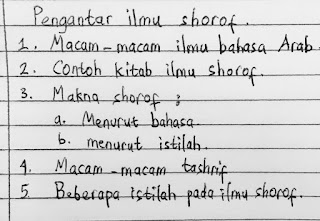 Pengantar ilmu shorof.
1. Macam-macam ilmu bahasa Arab.
2. Contoh kitab ilmu shorof.
3. Makna shorof :
a. Menurut bahasa.
b. menurut istilah.
4. Macam-macam tashrif
5. Beberapa istilah pada ilmu shorof.